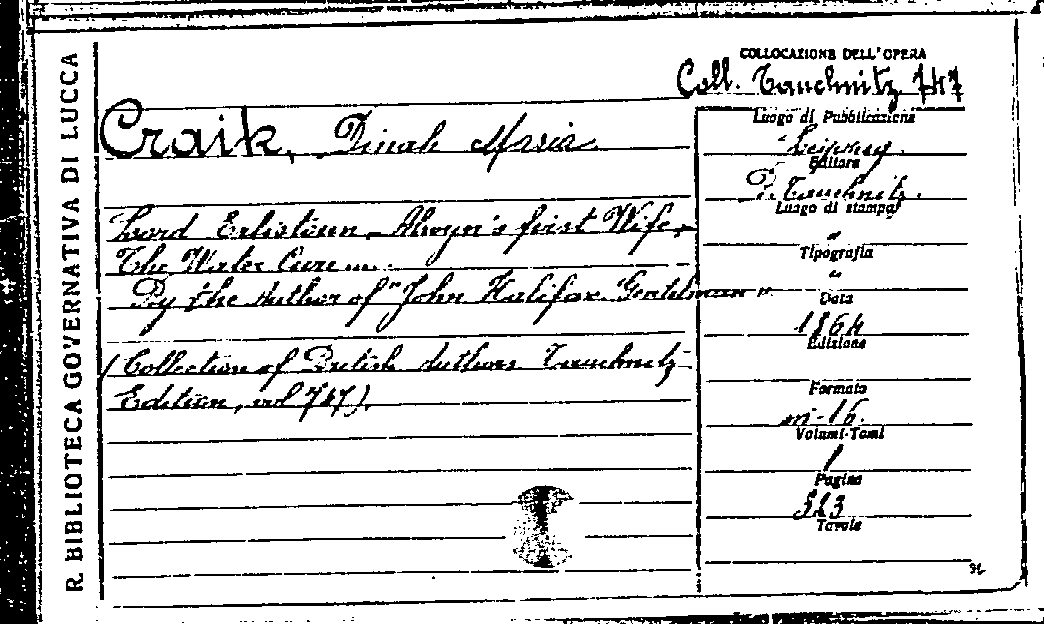 R. BIBLIOTECA GOVERNATIVA DI LUCCA
COLLOCAZIONE DELL'OPERA
Coll. Tauchnitz 747
Craik, Dinah Maria
Lord Erlistoun - Alwyn's first Wife,
The Water Cure ....
By the Author of "John Halifax Gentelman"
(Collection of British Authors Tauchnitz
Edition, vol 747).
Luogo di Pubblicazione
Leipzig.
Editore
B. Tauchnitz.
Luogo di stampa
"
Tipografia
"
Data
1864
Edizione
Formato
in-16.
Volumi-Tomi
1
Pagine
323
Tavole